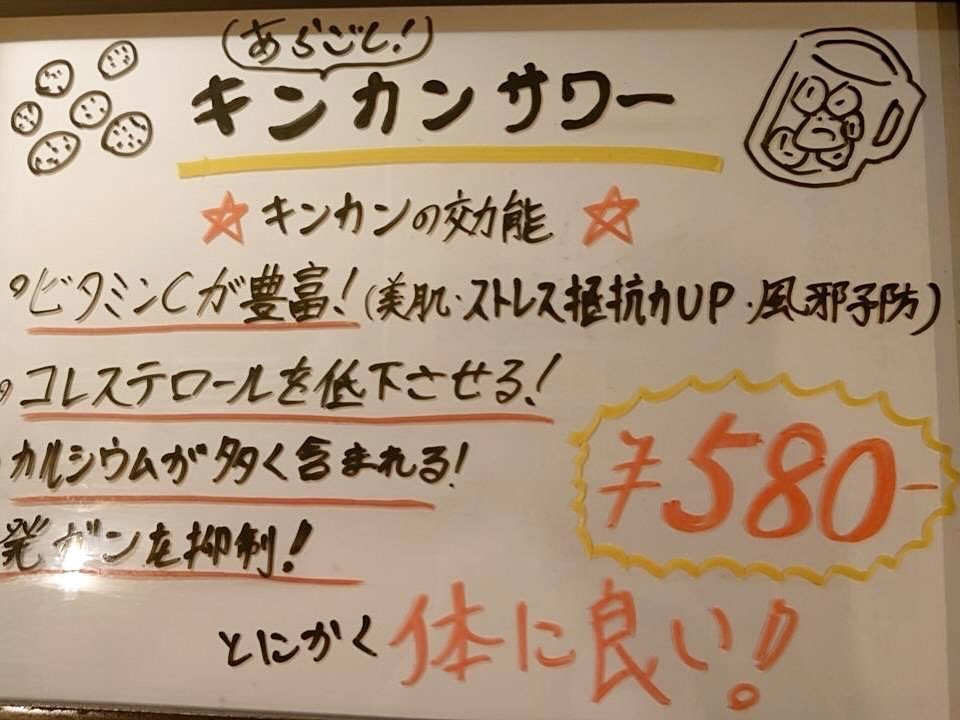 あらごし!
キンカンサワー
☆キンカンの効能☆
ビタミンCが豊富!(美肌・ストレス抵抗力UP・風邪予防)
コレステロールを低下させる!
カルシウムが多く含まれる!
発ガンを抑制!
¥580-
とにかく体に良い!